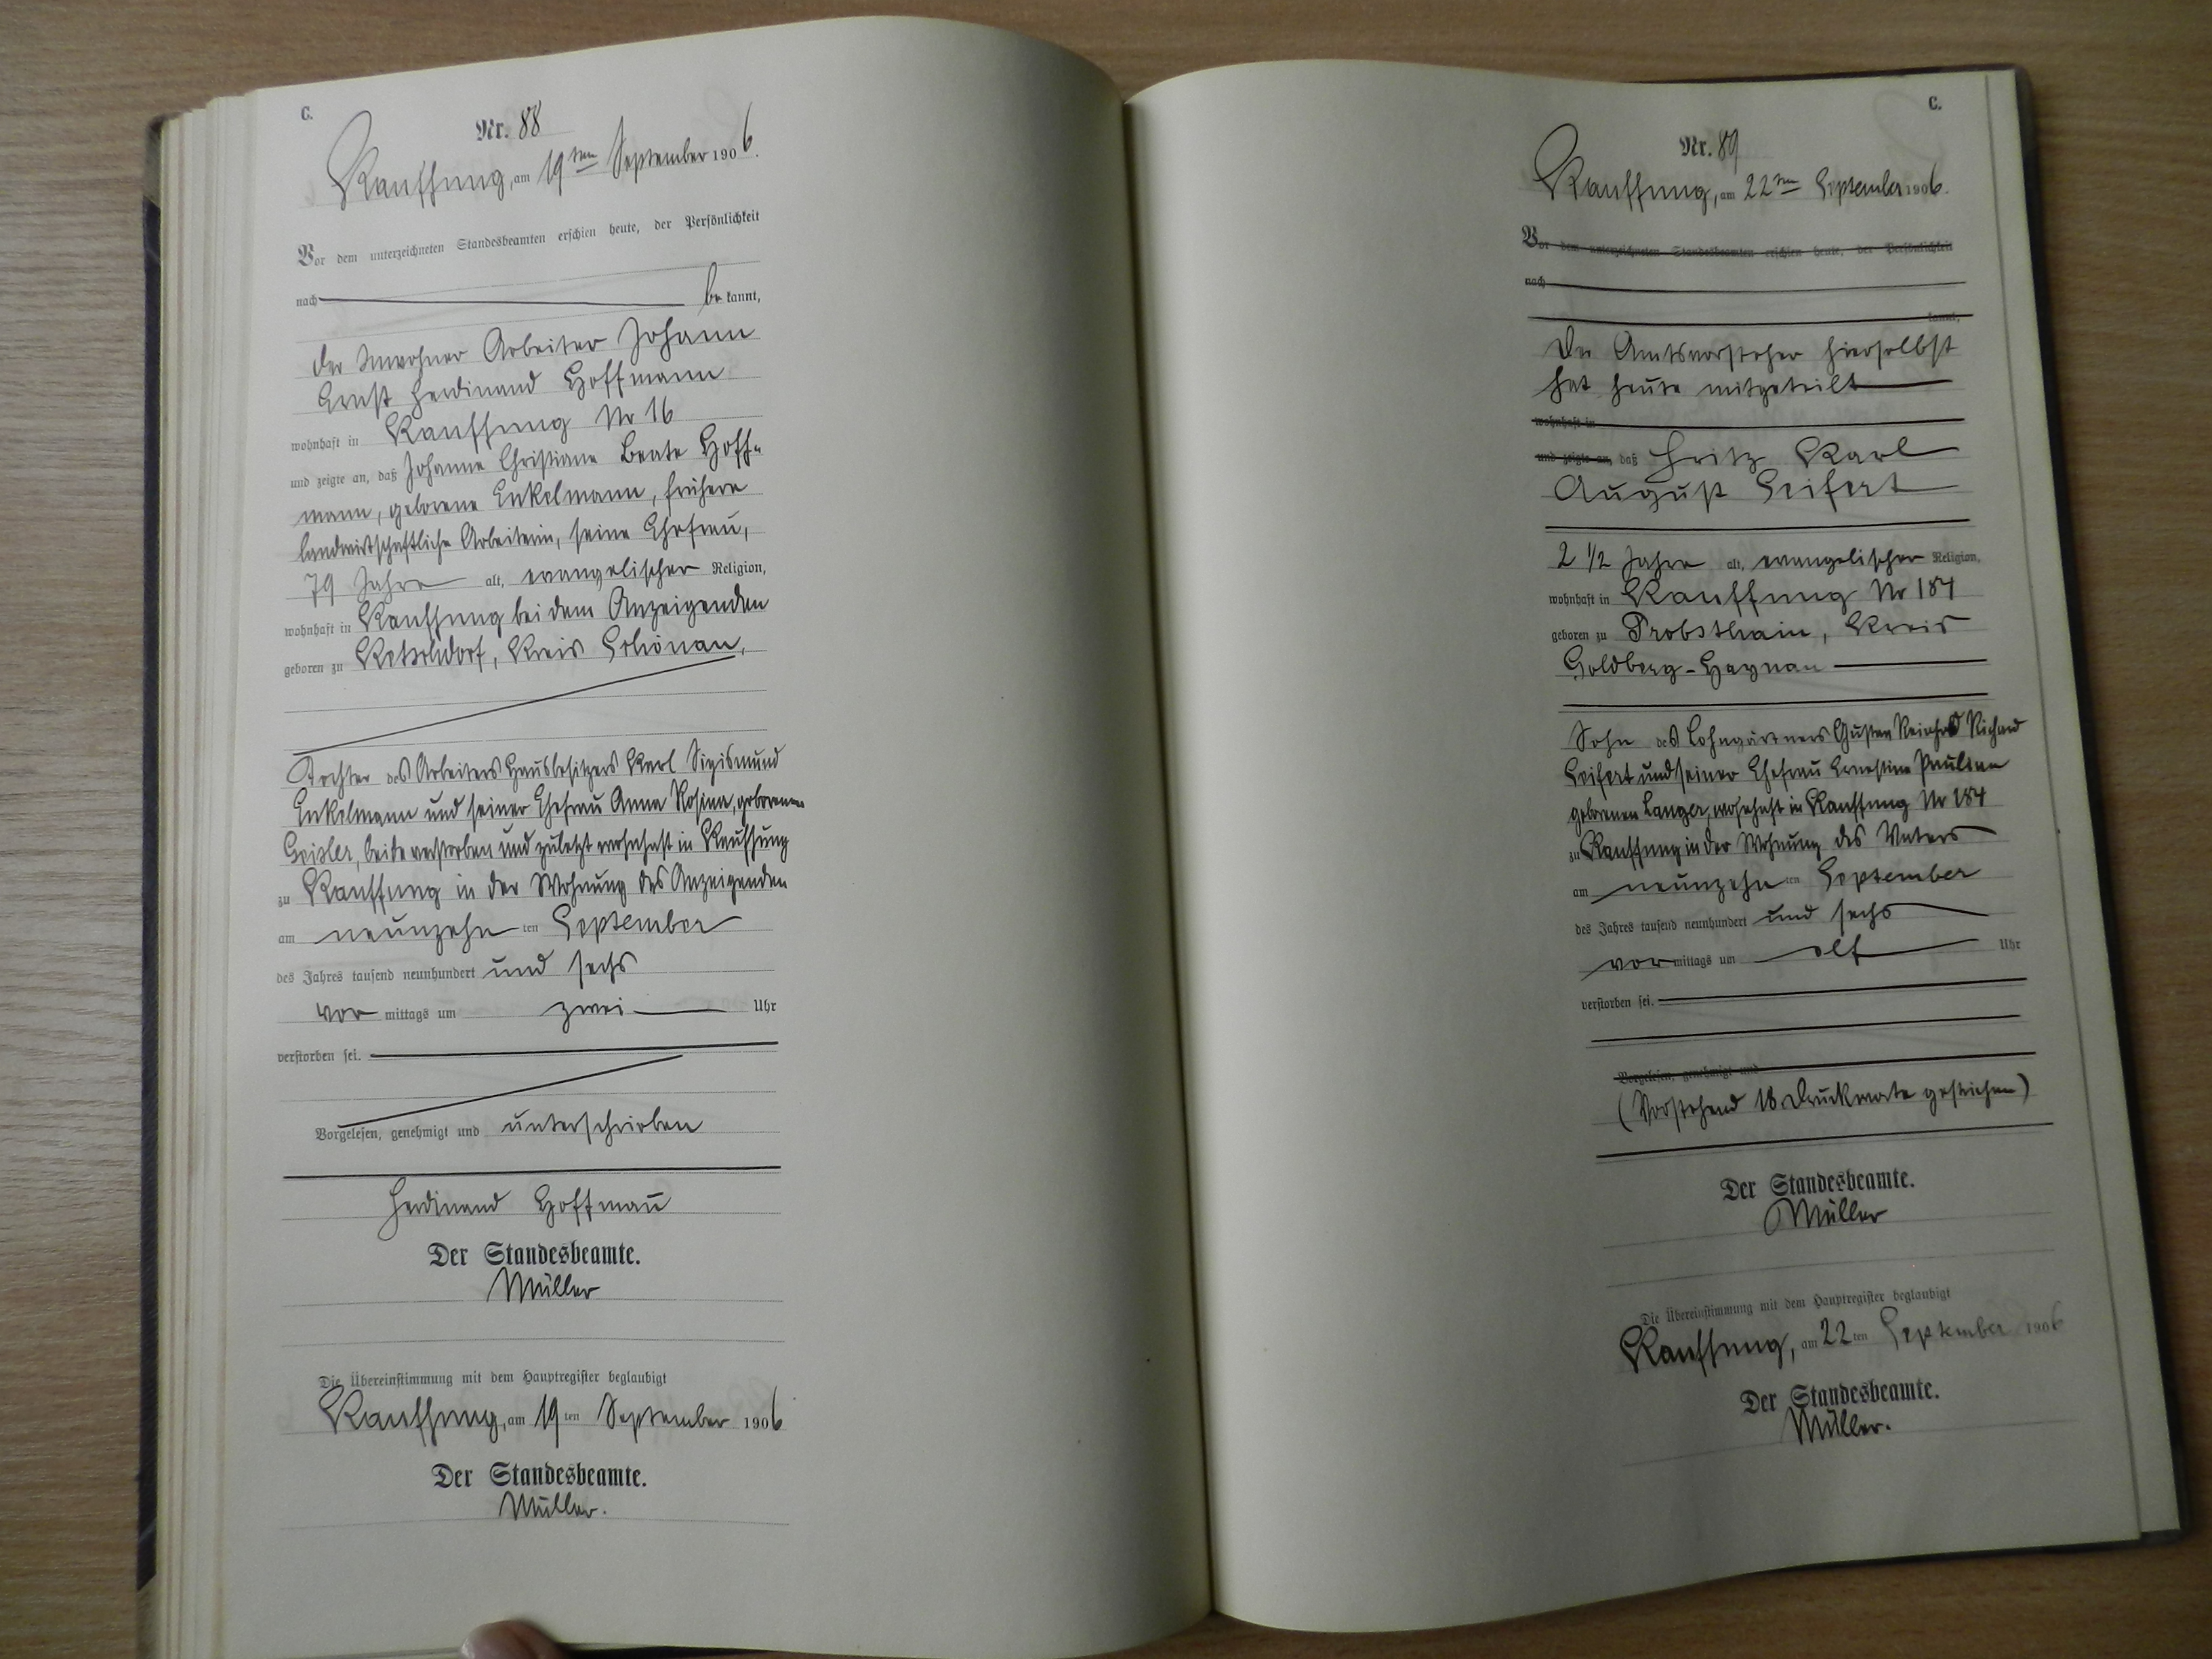 C.
Nr. 88
Kauffung, am 19ten September 1906.
Vor dem unterzeichneten Standesbeamten erschien heute, der Persönlichkeit
nach be kannt,
der Inwohner Arbeiter Johann
Ernst Ferdinand Hoffmann
wohnhaft in Kauffung Nr 16
und zeigte an, daß Johanne Christiane Beate Hoff-
mann, geborene Enkelmann, frühere
landwirtschaftliche Arbeiterin, seine Ehefrau,
79 Jahre alt, evangelischer Religion,
wohnhaft in Kauffung bei dem Anzeigenden
geboren zu Ketschdorf, Kreis Schönau,
Tochter des Arbeiters Hausbesitzers Karl Sigismund
Enkelmann und seiner Ehefrau Anna Rosina, geborenen
Geisler, beide verstorben und zuletzt wohnhaft in Kauffung
zu Kauffung in der Wohnung des Anzeigenden
am neunzehn ten September
des Jahres tausend neunhundert und sechs
vor mittags um zwei Uhr
verstorben sei.
Vorgelesen, genehmigt und unterschrieben
Ferdinand Hoffmann̄
Der Standesbeamte.
Müller
Die Übereinstimmung mit dem Hauptregister beglaubigt
Kauffung, am 19 ten September 1906
Der Standesbeamte.
Müller.
C.
Nr. 89
Kauffung, am 22ten September 1906.
Vor dem unterzeichneten Standesbeamten erschien heute, der Persönlichkeit
nach
kannt,
Der Amtsvorsteher hierselbst
hat heute mitgeteilt
wohnhaft in
und zeigte an, daß Fritz Karl
August Seifert
2 1/2 Jahre alt, evangelischer Religion,
wohnhaft in Kauffung Nr 184
geboren zu Probsthain, Kreis
Goldberg-Haynau
Sohn des Lohngärtners Gustav Reinhold Richard
Seifert und seiner Ehefrau Ernestine Pauline
geborenen Langer, wohnhaft in Kauffung Nr 184
zu Kauffung in der Wohnung des Vaters
am neunzehn ten September
des Jahres tausend neunhundert und sechs
vor mittags um elf Uhr
verstorben sei.
Vorgelesen, genehmigt und
(Vorstehend 18 Druckworte gestrichen)
Der Standesbeamte.
Müller
Die Übereinstimmung mit dem Hauptregister beglaubigt
Kauffung, am 22 ten September 1906
Der Standesbeamte.
Müller.